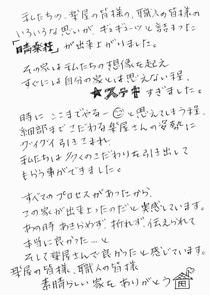 私たちの、琴屋の皆様の、職人の皆様の
いろいろな思いが、ギュギューッと詰まった
「時楽荘」が出来上がりました。
その家は私たちの想像を超え
すぐには自分の家とは思えない程、
★ステキ★すぎました。
時に ここまでやるー と思えてしまう程、
細部までこだわる琴屋さんの姿勢に
グイグイ引きこまれ、
私たちは多くのこだわりを引き出して
もらう事ができました。
すべてのプロセスがあったから、
この家が出来上ったのだと実感しています。
あの時 あきらめず、折れず、伝えられて
本当に良かった…と
そして琴屋さんで良かったと感じています。
琴屋の皆様、職人の皆様
素晴らしい家をありがとう